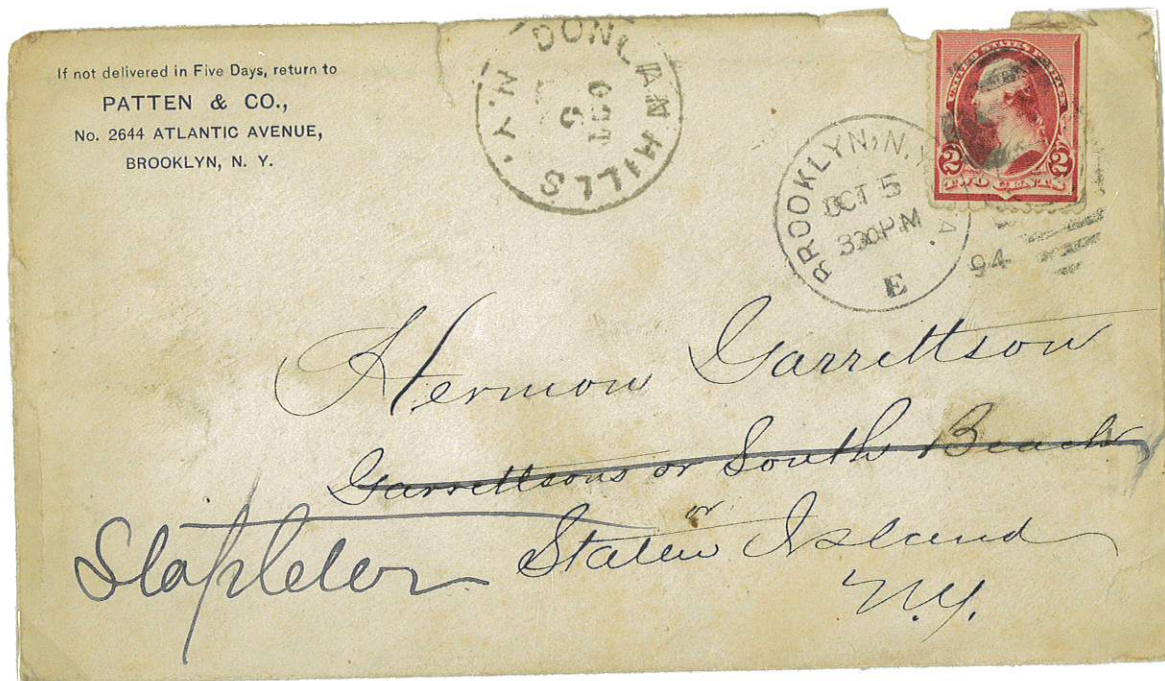 If not delivered in Five Days, return to
PATTEN & CO.,
No. 2644 ATLANTIC AVENUE,
BROOKLYN, N. Y.
DONGAN HILLS N.Y.
OCT
BROOKLYN, N.Y.
OCT 5
330 P.M
94
E
UNITED STATES POSTAGE
2 2
TWO CENTS
Hermon Garrettson
Garrettsons or South Beach
or
Stapleton Staten Island
N.Y.